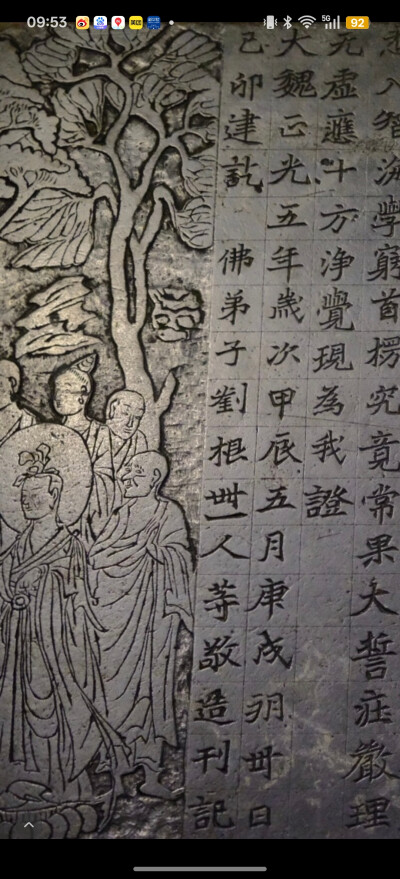 09:53 5G 92
入智海學窮首楞究竟常果大誓莊嚴理
无虛應十方淨覺現為我證
大魏正光五年歲次甲辰五月庚戌朔卅日
己卯建訖 佛弟子劉根卌一人等敬造刊記